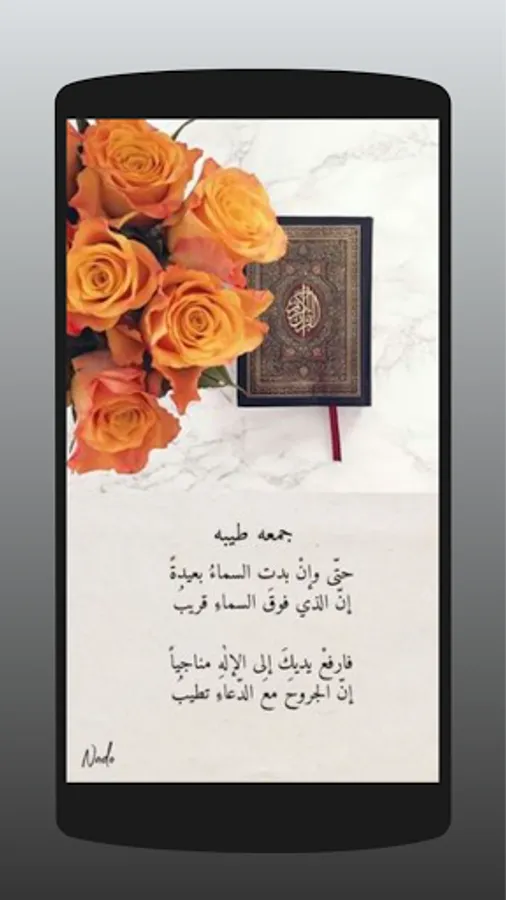 القرآن الكريم
جمعه طيبه
حتّى وإنْ بدتِ السماءُ بعيدةً
إنّ الذي فوقَ السماءِ قريبُ
فارفعْ يديكَ إلى الإلٰهِ مناجياً
إنّ الجروحَ معَ الدّعاءِ تطيبُ
Nodo